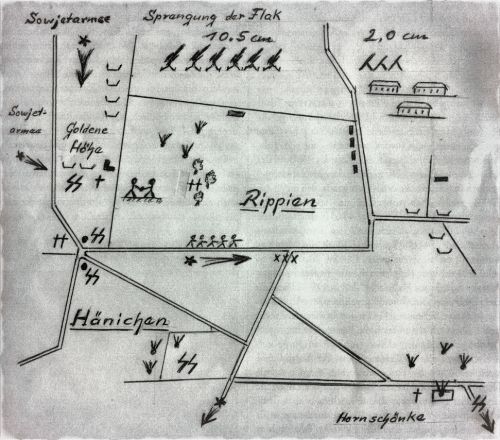 Sowjetarmee
Sprengung der Flak
10.5 cm
2,0 cm
Sowjet-
armee
Goldene
Höhe
Rippien
Hänichen
Hornschänke